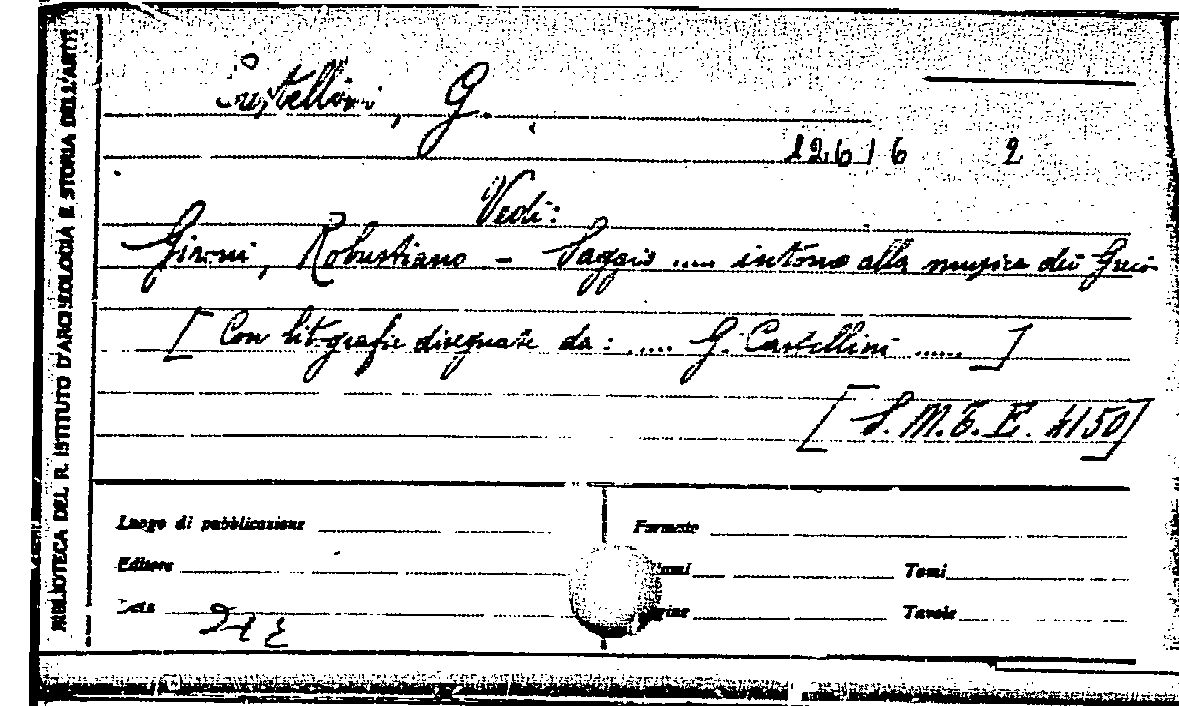 BIBLIOTECA DEL R. ISTITUTO D'ARCHEOLOGIA E STORIA DELL'ARTE
Castellini, G.
12616 2
Vedi:
Gironi, Robustiano - Saggio .... intorno alla musica dei Greci
[ Con litografie disegnate da : ..... G. Castellini ..... ]
[ S. M. E. E. 4150]
Luogo di pubblicazione Formato
Editore Volumi Tomi
Data Pagine Tavole